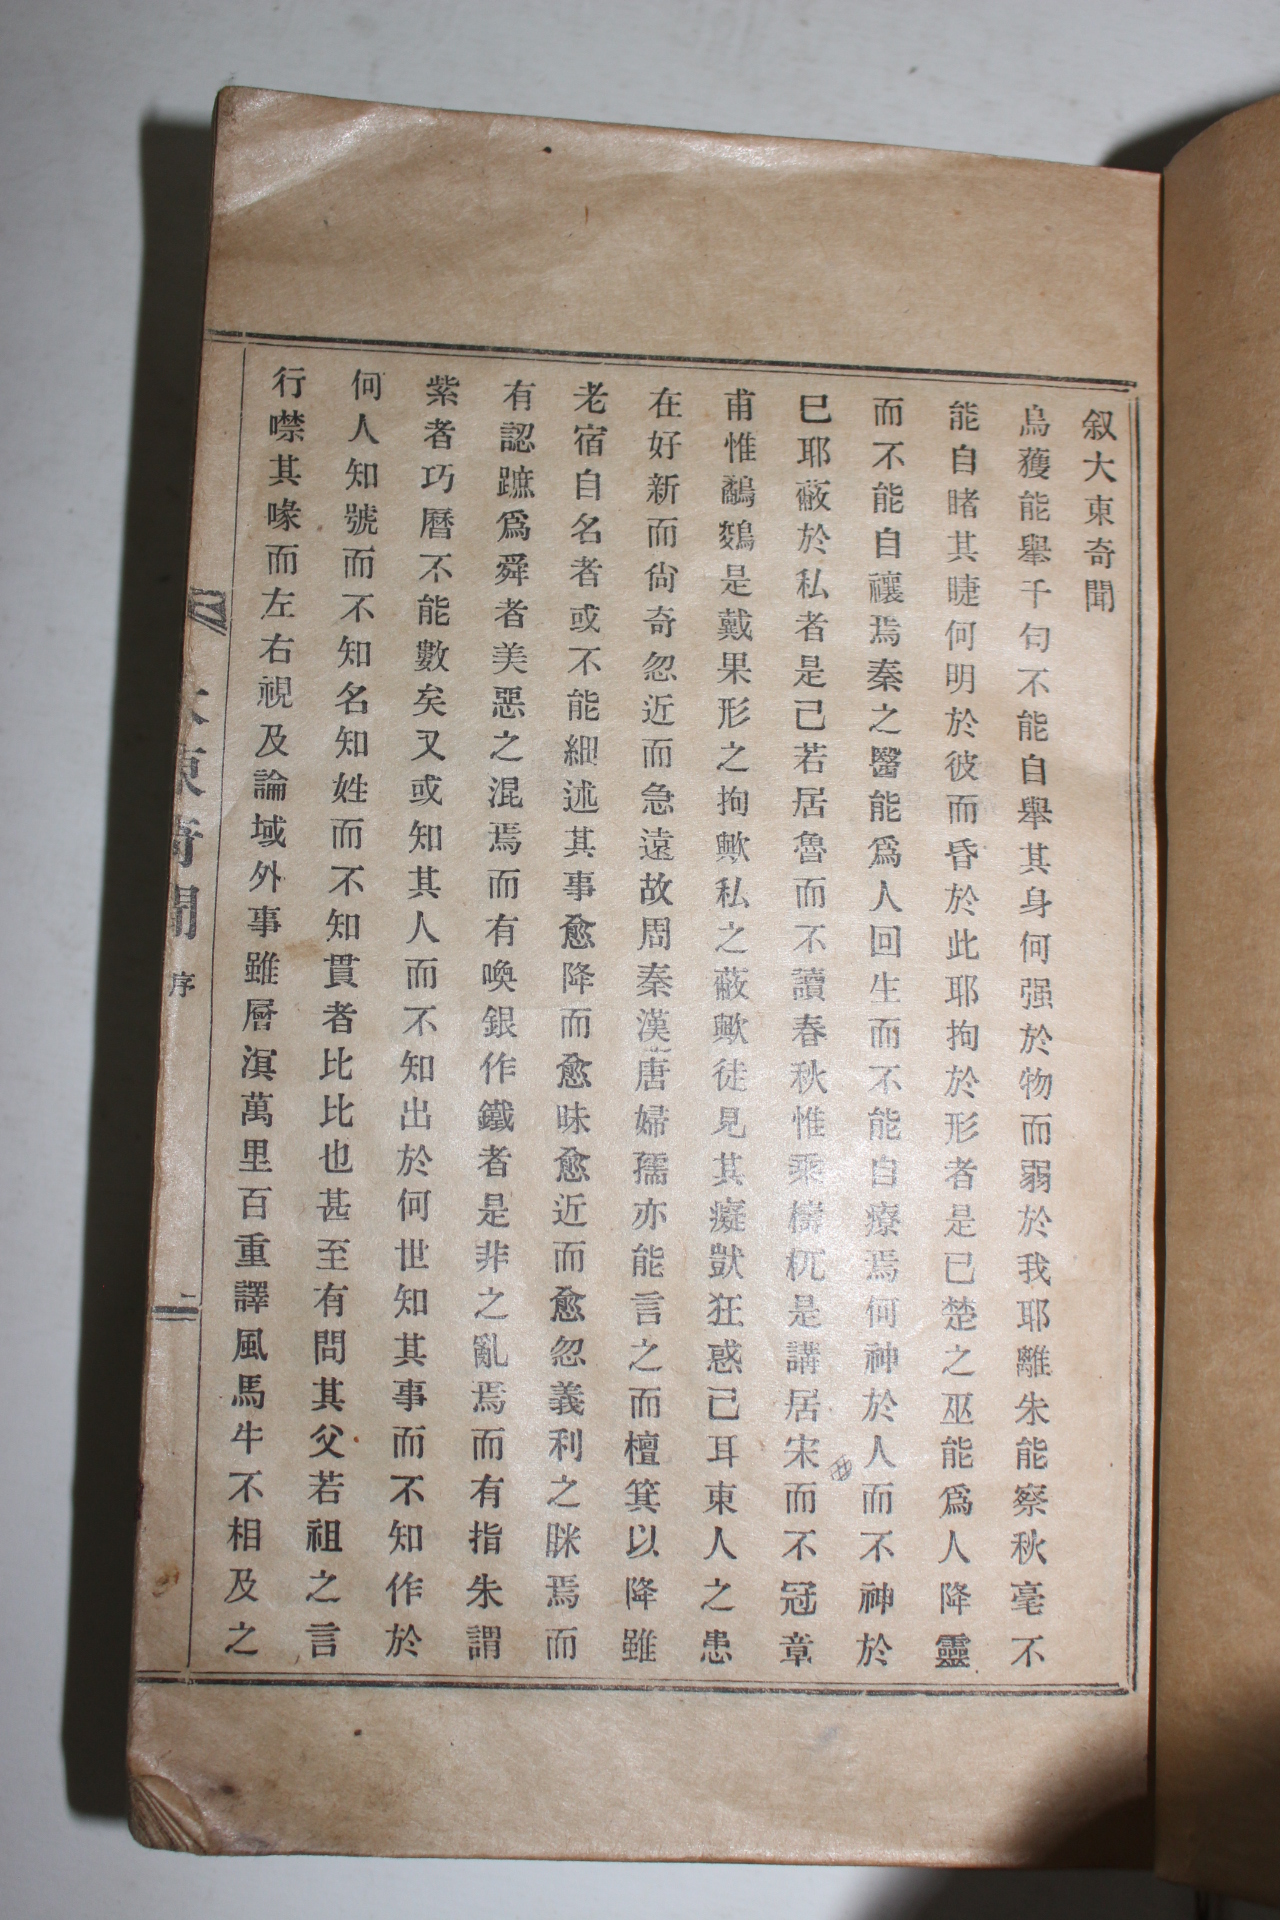 叙大東奇聞
烏獲能舉千匀不能自舉其身何强於物而弱於我耶離朱能察秋毫不
能自睹其睫何明於彼而昏於此耶拘於形者是已楚之巫能爲人降靈
而不能自禳焉秦之醫能爲人回生而不能自療焉何神於人而不神於
巳耶蔽於私者是己若居魯而不讀春秋惟乘檮杌是講居宋而不冠章
甫惟鷸鷄是戴果形之拘歟私之蔽歟徒見其癡獃狂惑已耳東人之患
在好新而尙奇忽近而急遠故周秦漢唐婦孺亦能言之而檀箕以降雖
老宿自名者或不能細述其事愈降而愈昧愈近而愈忽義利之眯焉而
有認蹠爲舜者美惡之混焉而有喚銀作鐵者是非之亂焉而有指朱謂
紫者巧曆不能數矣又或知其人而不知出於何世知其事而不知作於
何人知號而不知名知姓而不知貫者比比也甚至有問其父若祖之言
行噤其喙而左右視及論域外事雖層溟萬里百重譯風馬牛不相及之
大東奇聞 序 一